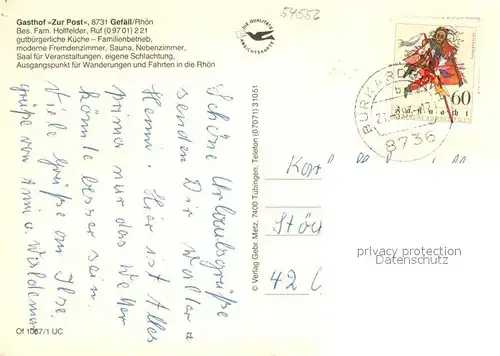 Gasthof »Zur Post«, 8731 Gefäll/Rhön
Bes. Fam. Hollfelder, Ruf (0 97 01) 2 21
gutbürgerliche Küche – Familienbetrieb,
moderne Fremdenzimmer, Sauna, Nebenzimmer,
Saal für Veranstaltungen, eigene Schlachtung,
Ausgangspunkt für Wanderungen und Fahrten in die Rhön
54552
DIE QUALITÄTS
ANSICHTSKARTE
60
8736
Schöne Urlaubsgrüße
senden Dir Walter u
Henni. Hier ist Alles
prima nur das Wetter
könnte besser sein.
Viele Grüße an Ilse
grüße von Anni u Waldemar
© Verlag Gebr. Metz, 7400 Tübingen, Telefon (07071) 31051
42
privacy protection
Datenschutz
Of 1067/1 UC